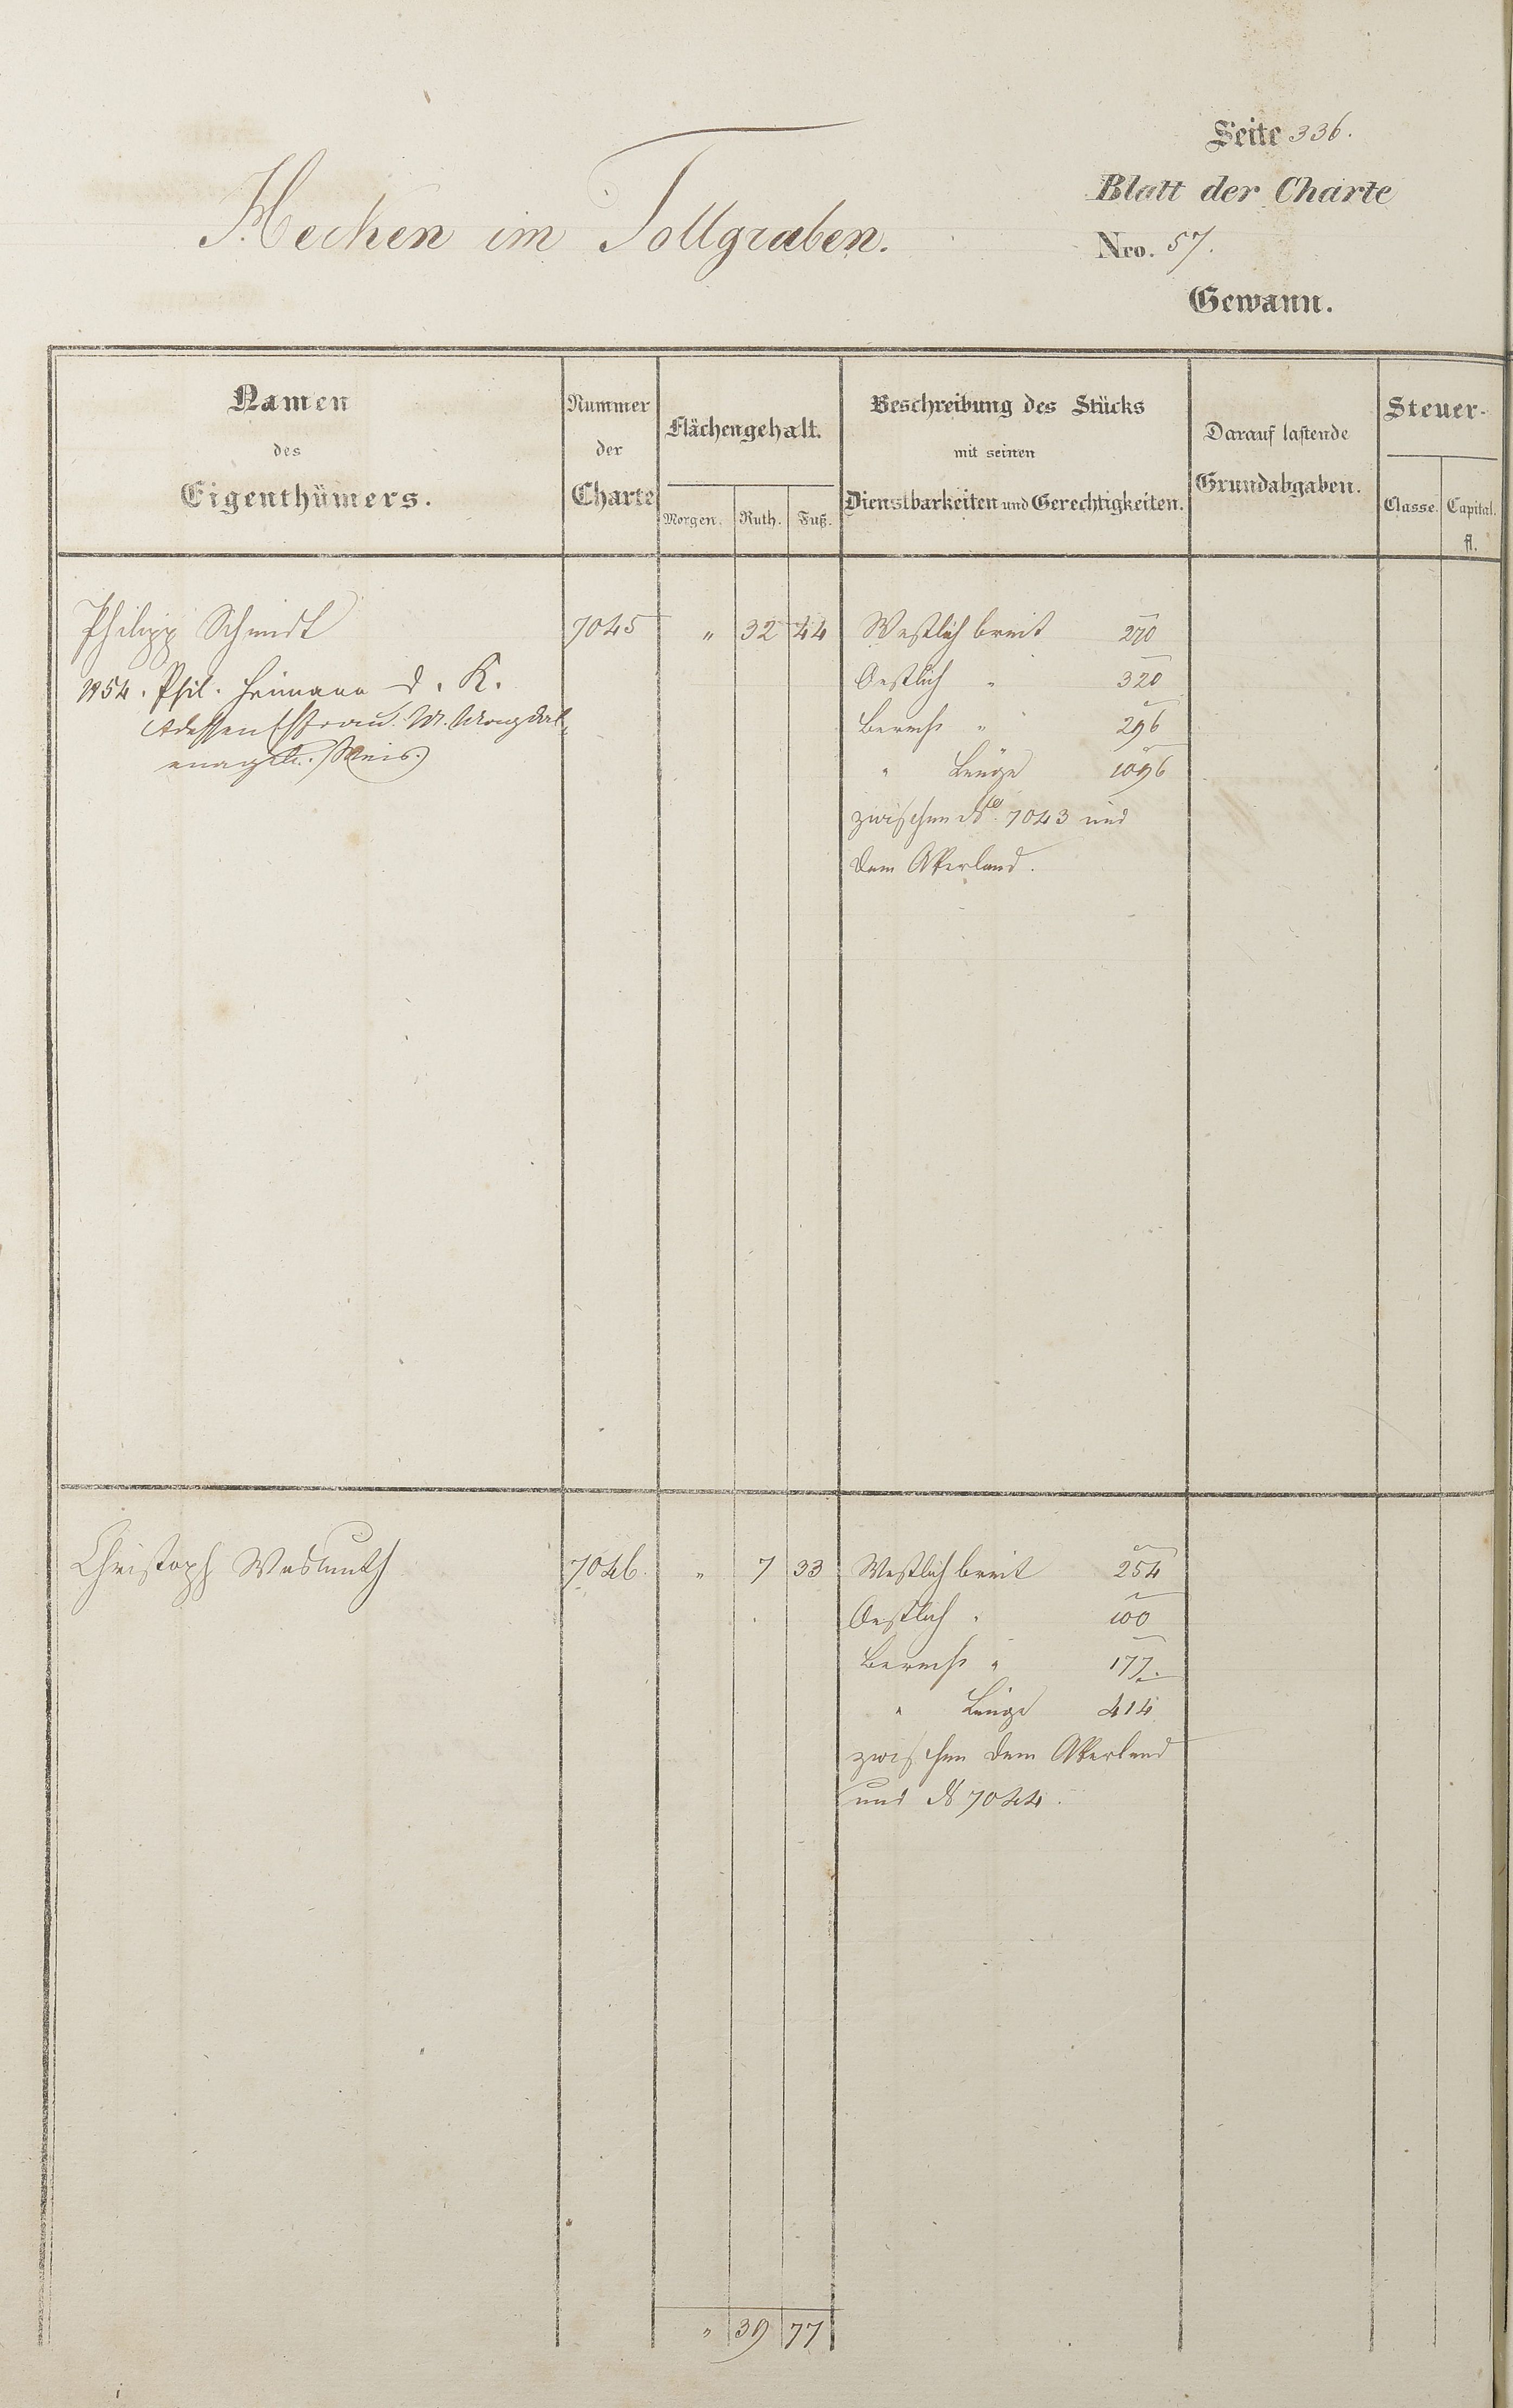 Seite 336.
Blatt der Charte
Hecken im Tollgraben.
Nro. 57.
Gewann.
Namen des Eigenthümers.
Nummer der Charte
Flächengehalt.
Morgen. Ruth. Fuß.
Beschreibung des Stücks mit seinen Dienstbarkeiten und Gerechtigkeiten.
Darauf lastende Grundabgaben.
Steuer-
Classe. Capital.
fl.
Philipp Schmidt 7045 " 32 44 Westlich breit 270
1854. Phil. Heimann d. K. Oestlich " 320
dessen Ehefrau M. Magdal- Berech " 296
Weis.) " Länge 1096
zwischen No. 7043 und
dem Akerland.
Christoph Wasmuth 7046. " 7 33 Westlich breit 254
Oestlich " 100
Berech " 177.
" Länge 414
zwischen dem Akerland
und No 7044.
" 39 77